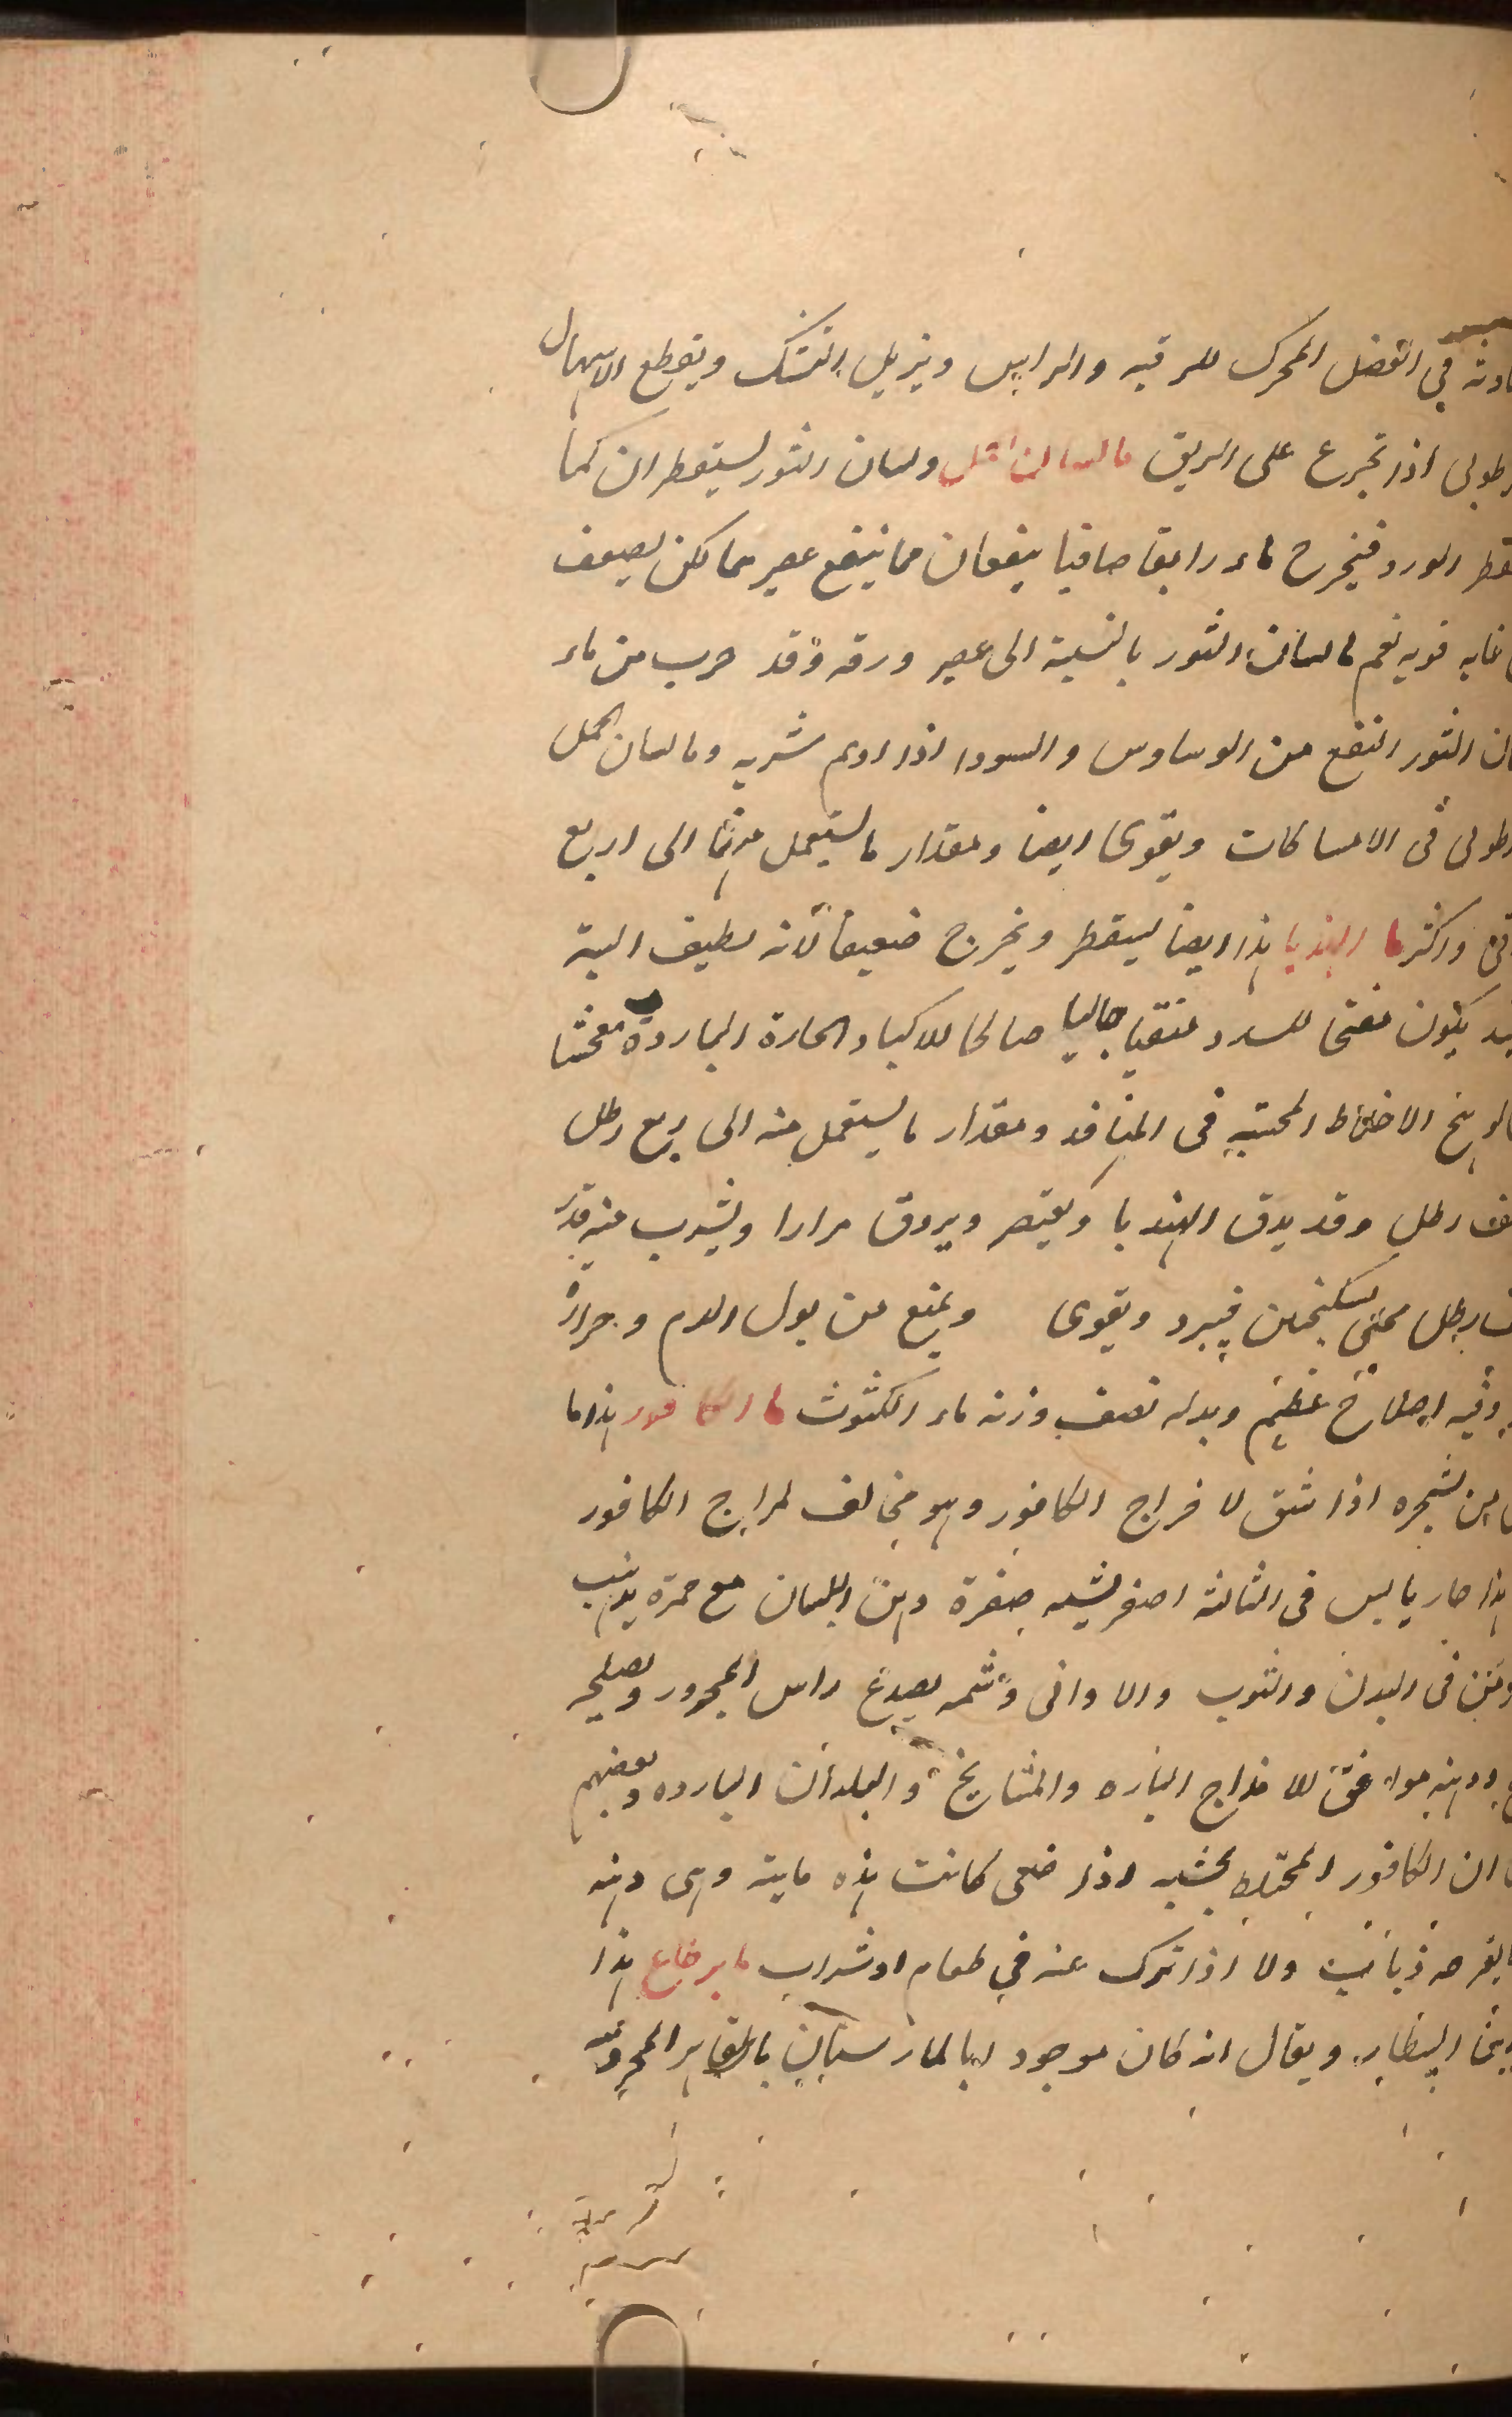 في الفضل المحرك للرقبه والراس ويزيل التشنك ويقطع الاسهال
رطوبى اذا تجرع على الريق ما لسان الحمل ولسان الثور ليستقطران كما
يقطر الورد فيخرج ماء رايقا صافيا ينفعان مما ينفع عصيرهما لكن يضعف
غايه قويه نعم ما لسان الثور بالنسبة الى عصير ورقه وقد جرب من ماء
لسان الثور النفع من الوساوس والسودا اذا اديم شربه وما لسان الحمل
رطوبى فى الامساكات ويقوى ايضا ومقدار ما يستعمل منهما الى اربع
اواقى واكثر ما الهندبا هذا ايضا ليقطر ويخرج ضعيفا لانه لطيف البتة
يكون مفتحا للسدد منقيا جاليا صالحا للاكباد الحارة الباردة
الاخلاط المحتبيه فى المنافد ومقدار ما يستعمل منه الى ربع رطل
نصف رطل وقد يدق الهندبا ويعتصر ويروق مرارا ويشرب منه قدر
رطل بسكنجبين فيبرد ويقوى ويمنع من بول الدم وحرارة
وفيه اصلاح عظيم وبدله نصف وزنه ماء الكشوث ما الكافور هذا ما
من شجره اذا شق لاخراج الكافور وهو مخالف لمزاج الكافور
هذا حار يابس فى الثالثة اصفر يشبه صفرة دهن البلسان مع حمرة يذهب
فى البدن والثوب والاوانى وشمه يصدع راس المحرور ويصلحه
ودهنه موافق للامزاج البارده والمشايخ والبلدان البارده وبعضهم
ان الكافور المختلط بخشبه اذا صفى كانت هذه مايته وهى دهنه
يقرضه ذبابيب ولا اذا ترك منه في طعام او شراب ما برضاع هذا
البيطار ويقال انه كان موجود ابا لمارستان بالقاهرا المحروسه